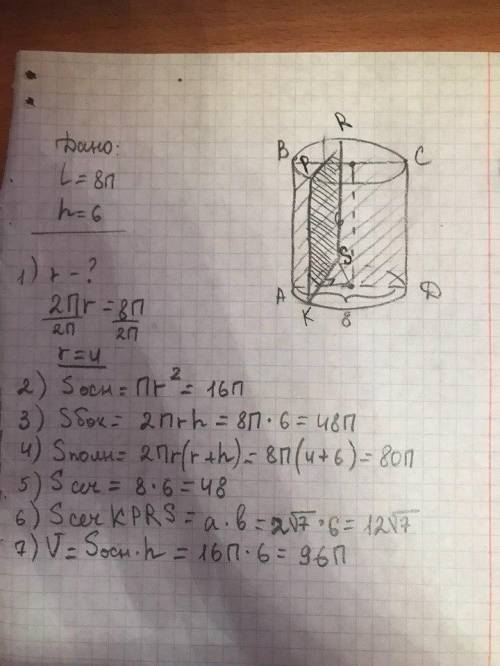 Дано:
L = 8π
h = 6
1) r - ?
2πr/2π = 8π/2π
r = 4
2) Sосн = πr² = 16π
3) Sбок = 2πrh = 8π · 6 = 48π
4) Sполн = 2πr(r+h) = 8π(4+6) = 80π
5) Sсеч = 8 · 6 = 48
6) Sсеч KPRS = a · b = 2√7 · 6 = 12√7
7) V = Sосн · h = 16π · 6 = 96π
R
B
C
P
6
S
A
D
K
8